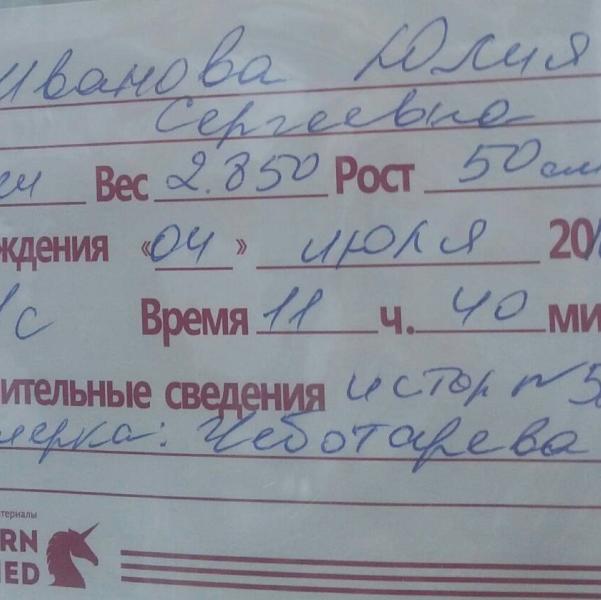 Иванова Юлия
Сергеевна
Вес 2.850 Рост 50 см
ждения «04» июля 20
Время 11 ч. 40 ми
ительные сведения истор №5
мерка: Чеботарева
териалы
RN
ED